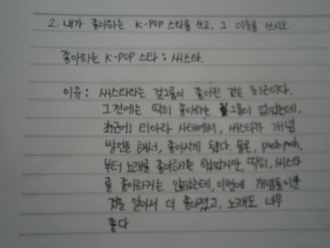 2. 내가 좋아하는 K-POP 스타를 쓰고, 그 이유를 쓰시오.
좋아하는 K-POP 스타 : 씨스타.
이유 : 씨스타라는 걸그룹이 좋아진 것은 최근이다.
그 전에는 딱히 좋아하는 걸그룹이 없었는데,
최근에 티아라 사태에서, 씨스타가 개념
발언을 해서, 좋아하게 됐다. 물론, push push
부터 노래를 좋아하긴 했었지만, 딱히, 씨스타
를 좋아하거는 않았는데, 이번에 개념돌이란
것을 알아서 더 좋아졌고, 노래도 너무
좋다